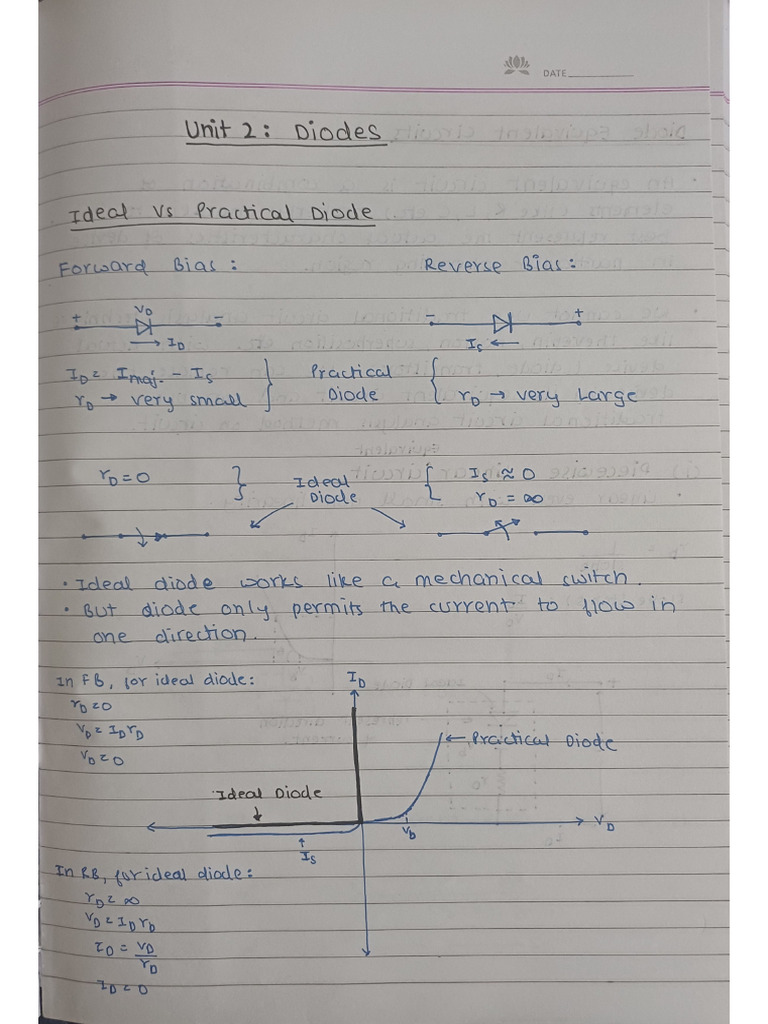 DATE
Unit 2: Diodes
Ideal vs Practical Diode
Forward Bias: Reverse Bias:
+ VD - - +
→ ID IS ←
ID = Imaj. - IS } Practical {
rD → very small } Diode { rD → very Large
rD = 0 } Ideal { IS ≈ 0
Diode rD = ∞
• Ideal diode works like a mechanical switch.
• But diode only permits the current to flow in
one direction.
In FB, for ideal diode: ID
rD = 0
VD = ID rD
VD = 0
← Practical Diode
Ideal Diode
Vb VD
↑
IS
In RB, for ideal diode:
rD = ∞
VD = ID rD
ID = VD
rD
ID = 0